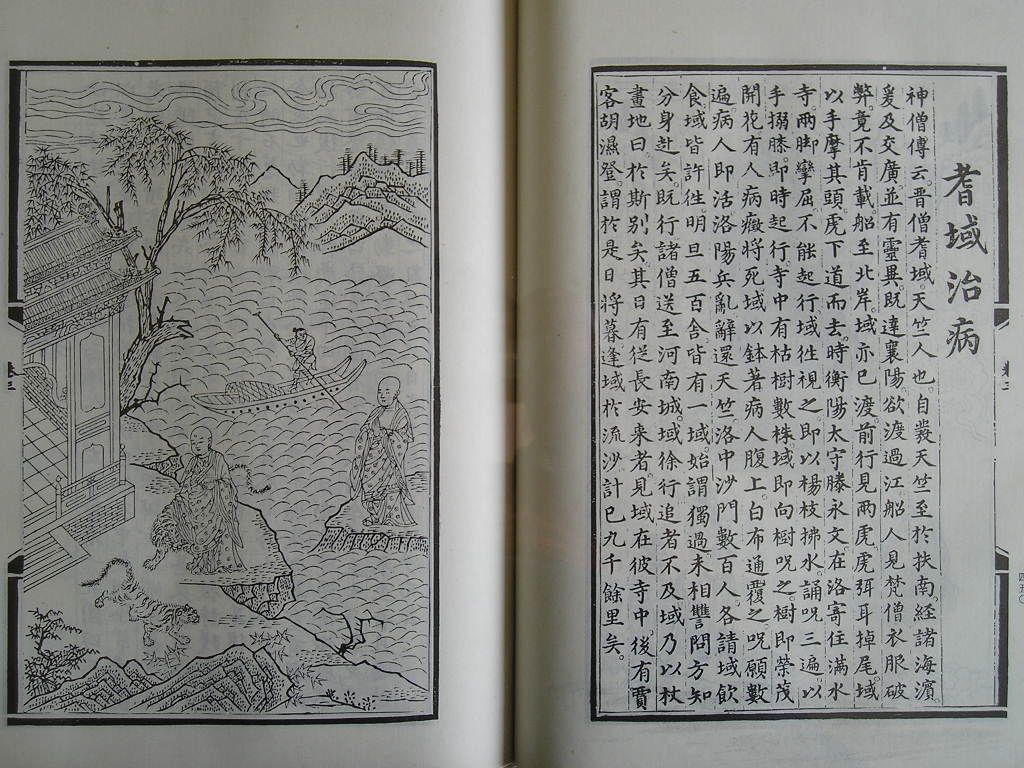 耆域治病
神僧傳云。晋僧耆域。天竺人也。自發天竺至於扶南。經諸海濱。
爰及交廣。並有靈異。既達襄陽。欲渡過江。船人見梵僧衣服破
弊。竟不肯載。船至北岸。域亦已渡。前行見兩虎。虎弭耳掉尾。域
以手摩其頭。虎下道而去。時衡陽太守滕永文在洛寄住滿水
寺。兩脚攣屈不能起行。域往視之。即以楊枝拂水。誦呪三遍。以
手搦膝。即時起行。寺中有枯樹數株。域即向樹呪之。樹即榮茂
開花。有人病癥將死。域以鉢著病人腹上。白布通覆之。呪願數
遍。病人即活。洛陽兵亂。辭還天竺。洛中沙門數百人。各請域飲
食。域皆許往。明旦五百舍。皆有一域。始謂獨過。来相讐問。方知
分身赴矣。既行。諸僧送至河南城。域徐行。追者不及。域乃以杖
畫地曰。於斯別矣。其日有從長安来者。見域在彼寺中。後有賈
客胡濕登。謂於是日將暮。逢域於流沙。計已九千餘里矣。
卷三
四五〇